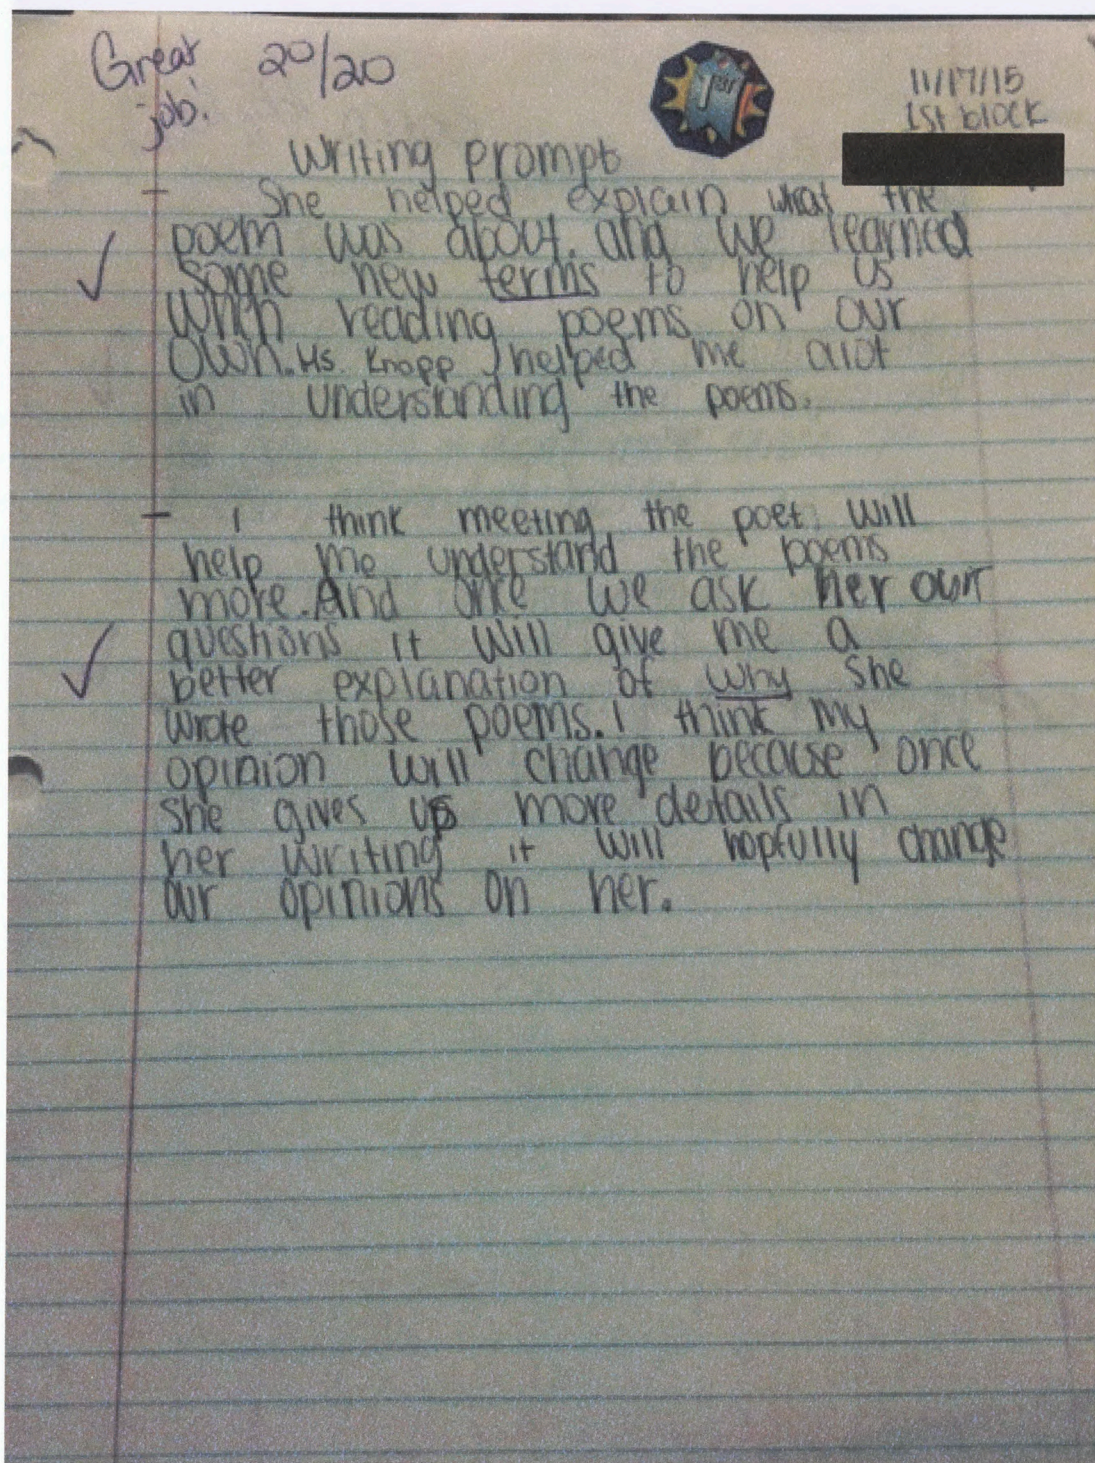 Great 20/20
job!
1st
11/17/15
1st block
Writing prompt
She helped explain what the
poem was about. and we learned
some new terms to help us
when reading poems on our
own. Ms. Knopp helped me alot
in understanding the poems.
I think meeting the poet will
help me understand the poems
more. And once we ask her our
questions it will give me a
better explanation of why she
wrote those poems. I think my
opinion will change because once
she gives us more details in
her writing it will hopfully change
our opinions on her.